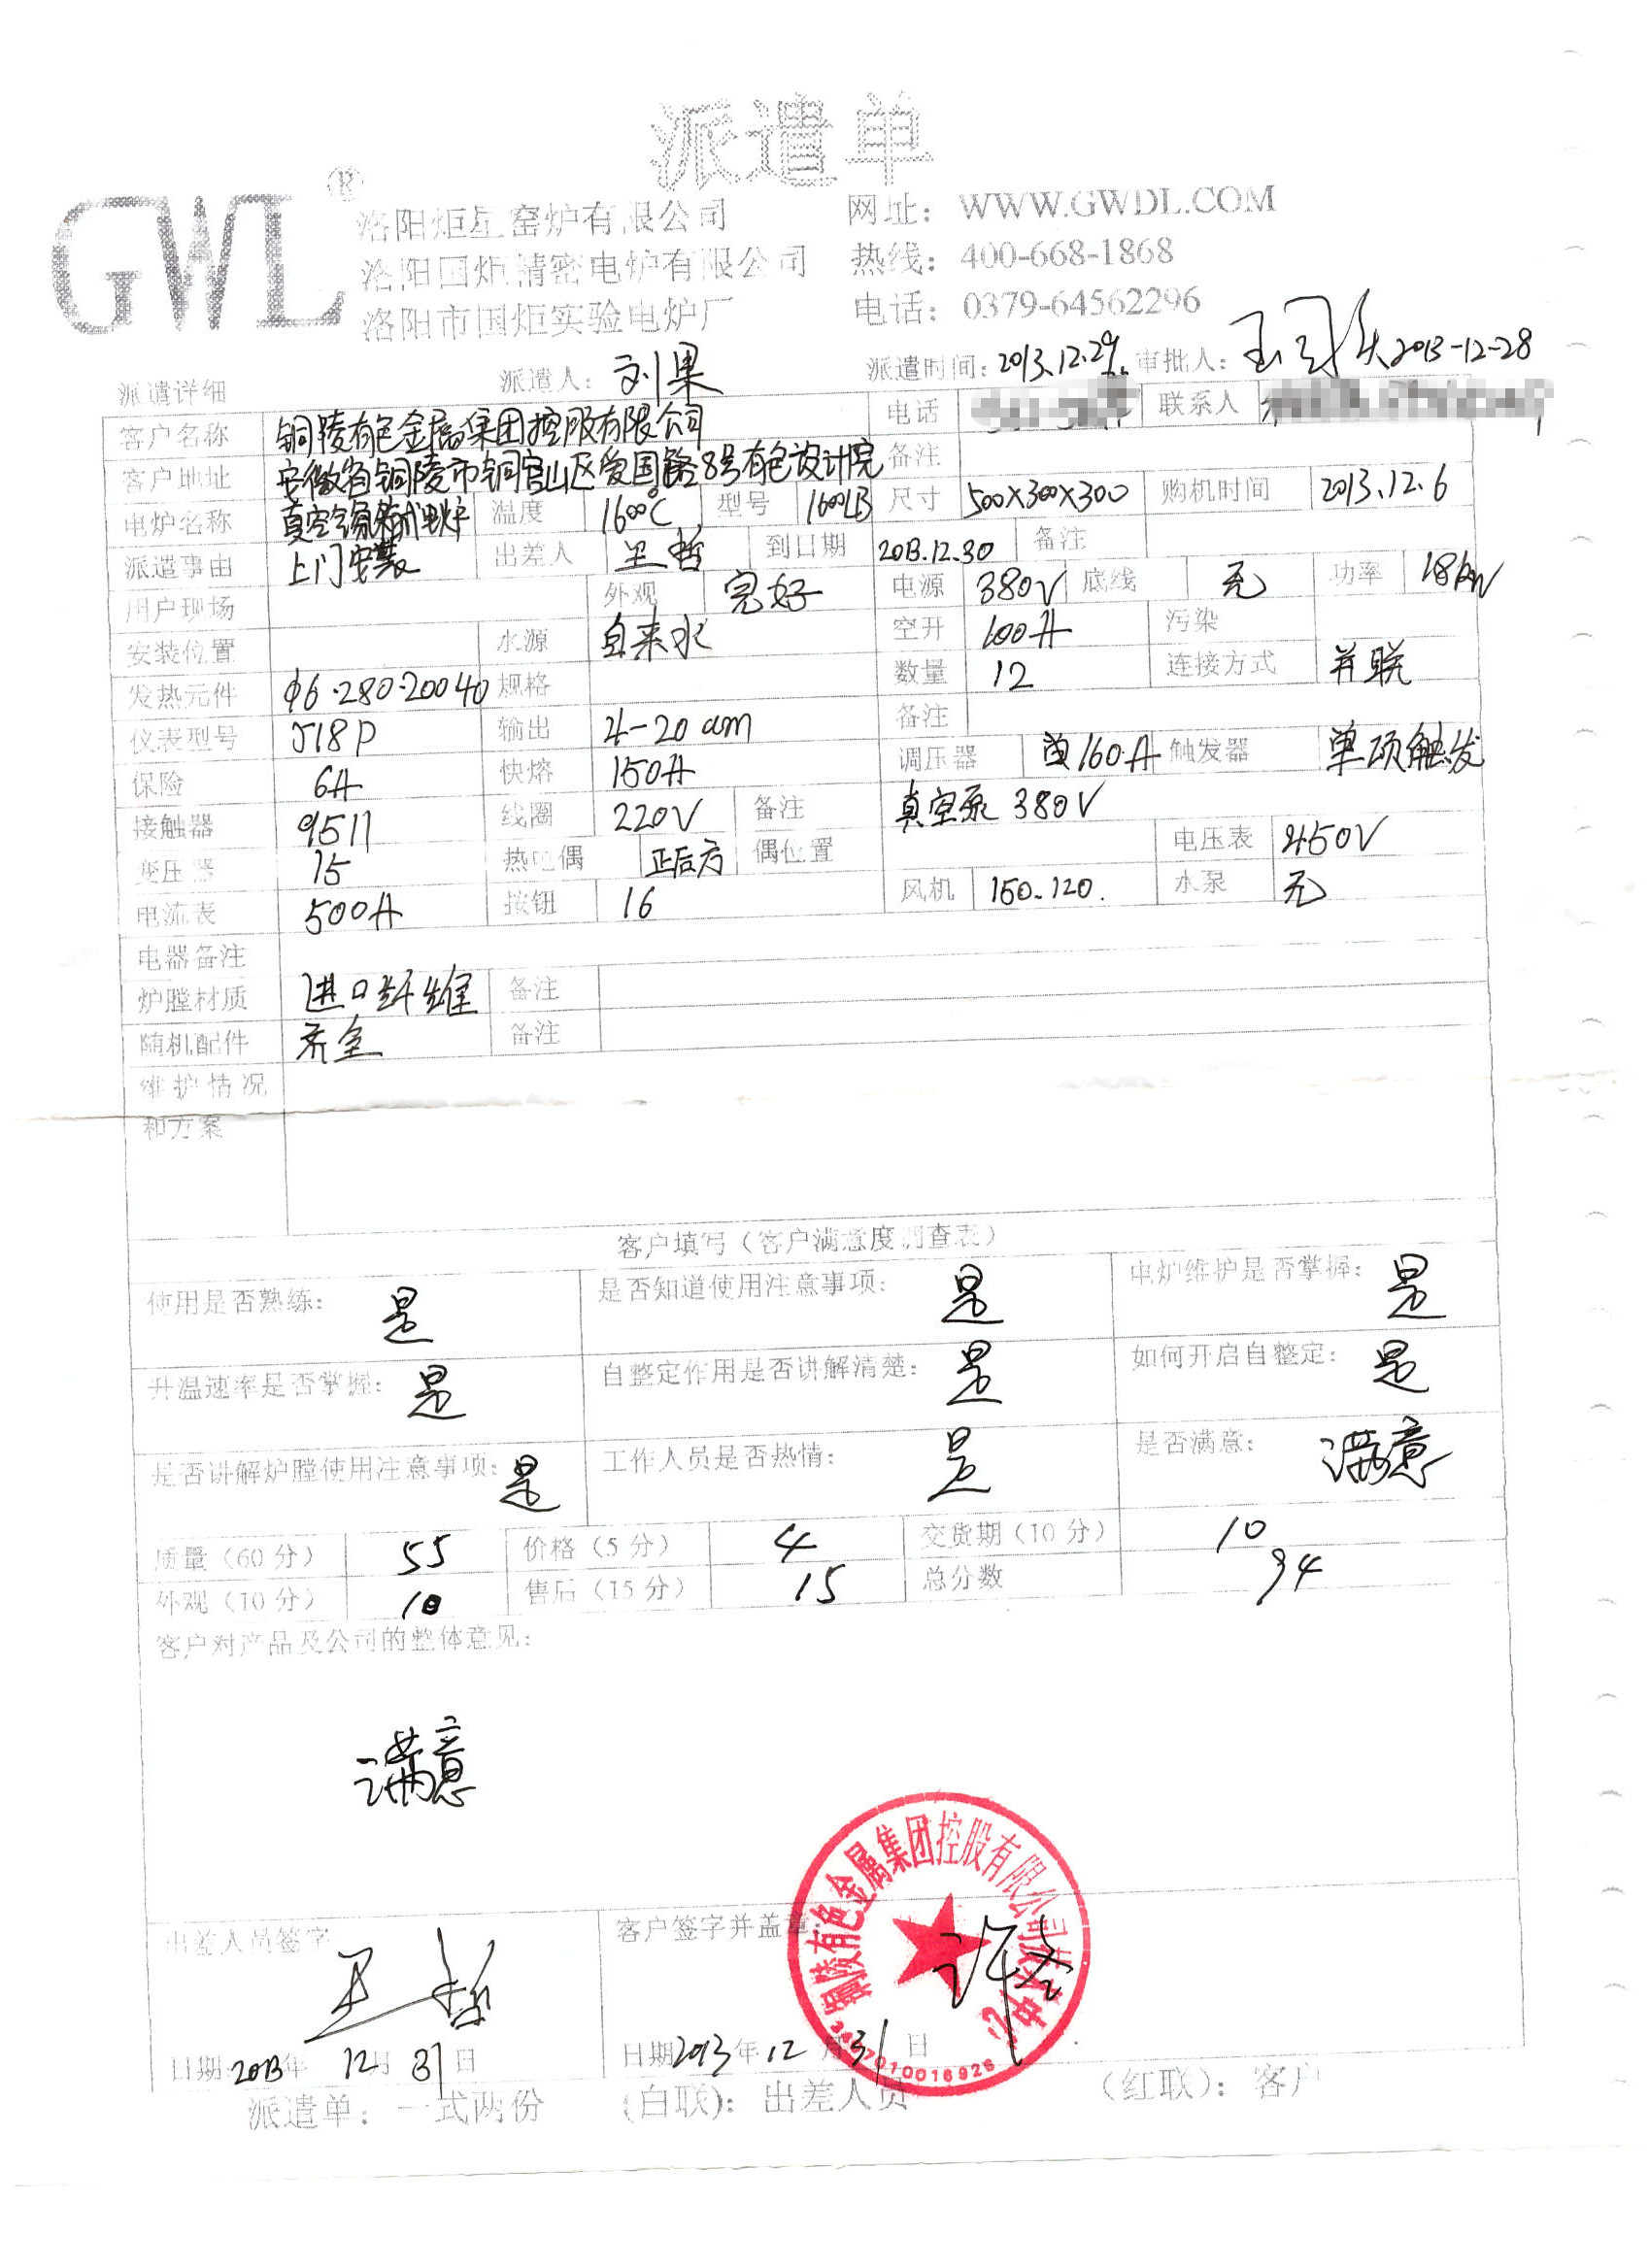 派遣单
GWDL®
洛阳炬星窑炉有限公司 网址: WWW.GWDL.COM
洛阳国炬精密电炉有限公司 热线: 400-668-1868
洛阳市国炬实验电炉厂 电话: 0379-64562296
派遣详细 派遣人: 刘果 派遣时间: 2013.12.29 审批人: 2013-12-28
客户名称 铜陵有色金属集团控股有限公司 电话 联系人
客户地址 安徽省铜陵市铜官山区爱国路8号有色设计院 备注
电炉名称 真空气氛箱式电炉 温度 1600℃ 型号 1600LB 尺寸 500X300X300 购机时间 2013.12.6
派遣事由 上门安装 出差人 王哲 到日期 2013.12.30 备注
用户现场 外观 完好 电源 380V 底线 无 功率 18kw
安装位置 水源 自来水 空开 100A 污染
发热元件 φ6·280·200 40 规格 数量 12 连接方式 并联
仪表型号 518P 输出 4-20 am 备注
保险 6A 快熔 150A 调压器 160A 触发器 单项触发
接触器 9511 线圈 220V 备注 真空泵 380V
变压器 15 热电偶 正后方 偶位置 电压表 450V
电流表 500A 按钮 16 风机 150.120. 水泵 无
电器备注
炉膛材质 进口纤维 备注
随机配件 齐全 备注
维护情况
和方案
客户填写(客户满意度调查表)
使用是否熟练: 是 是否知道使用注意事项: 是 电炉维护是否掌握: 是
升温速率是否掌握: 是 自整定作用是否讲解清楚: 是 如何开启自整定: 是
是否讲解炉膛使用注意事项: 是 工作人员是否热情: 是 是否满意: 满意
质量(60分) 55 价格(5分) 4 交货期(10分) 10
外观(10分) 10 售后(15分) 15 总分数 94
客户对产品及公司的整体意见:
满意
出差人员签字 王哲 客户签字并盖章:
铜陵有色金属集团控股有限公司技术中心
日期 2013年 12月 31日 日期 2013年 12月 31日
派遣单: 一式两份 (白联): 出差人员 (红联): 客户